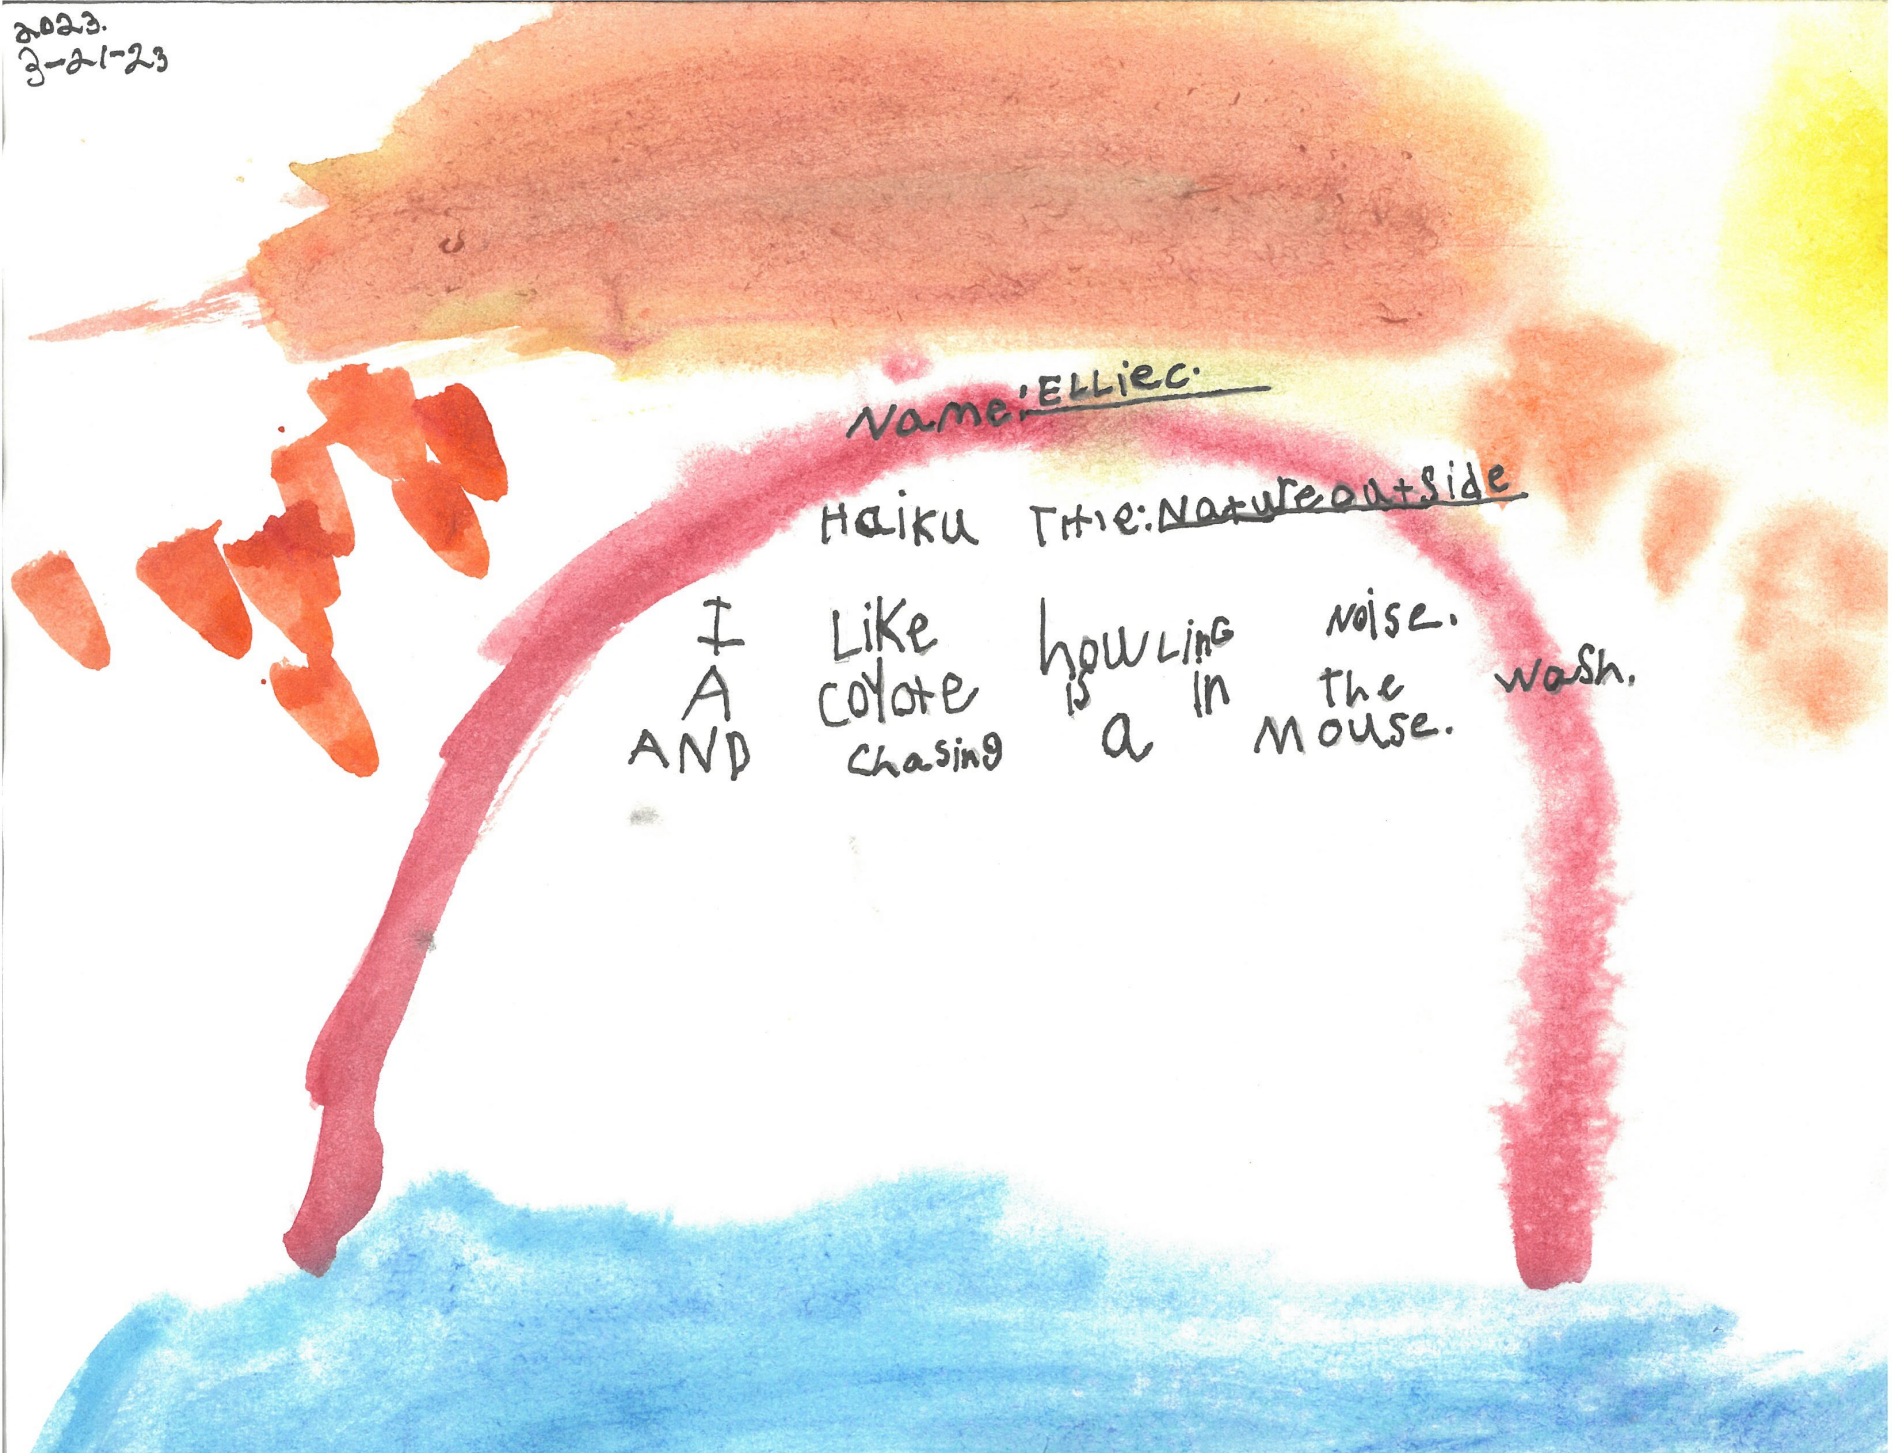 2023.
3-21-23
Name: ELLiec.
Haiku Title: Nature outside
I Like howLinG Noise.
A coyote is in the wash.
AND chasing a Mouse.